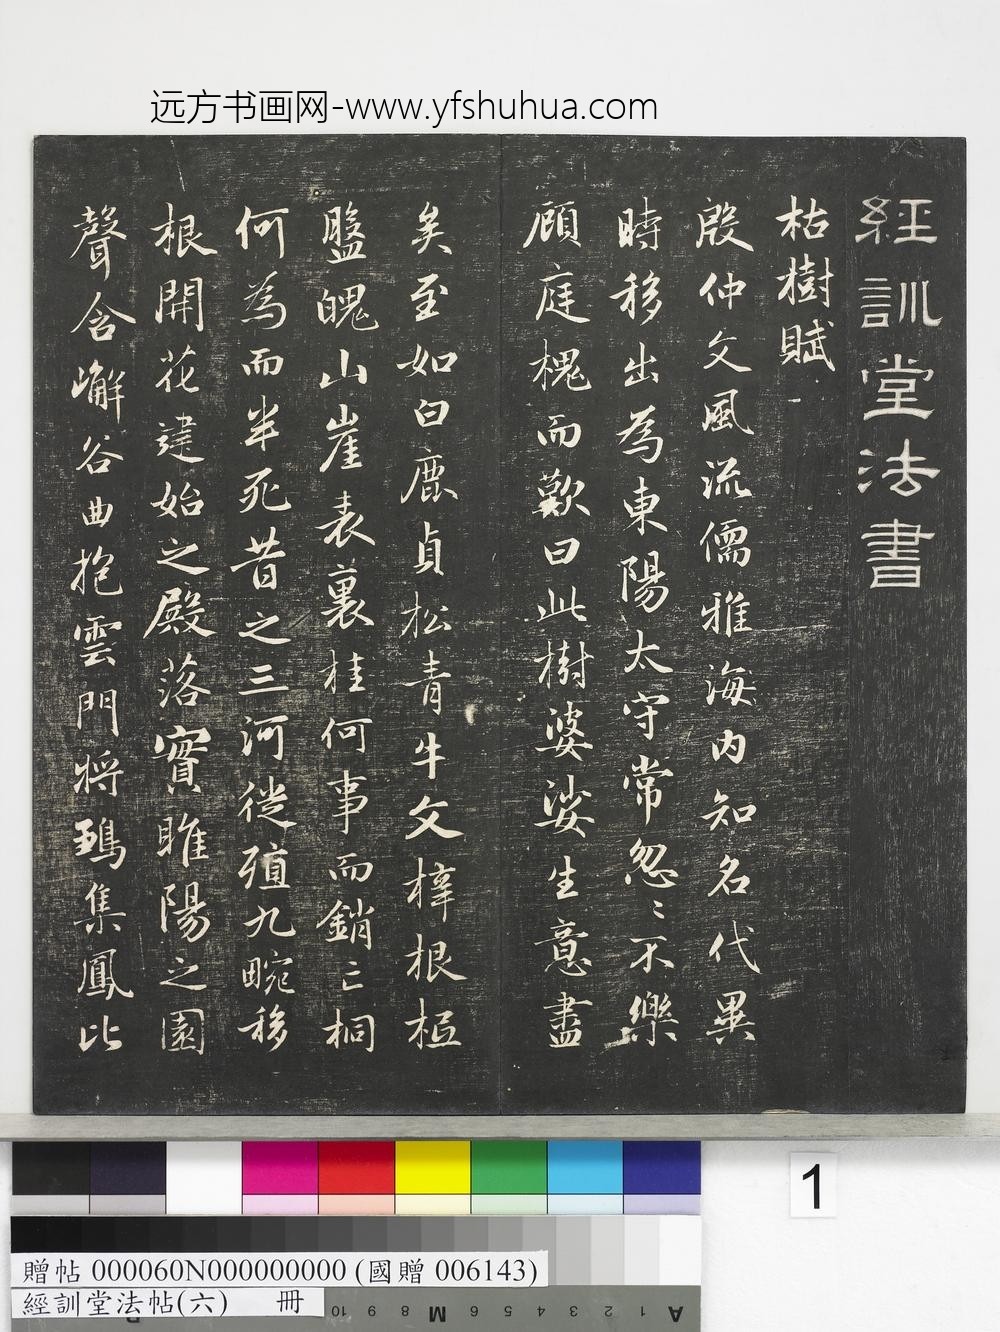 远方书画网-www.yfshuhua.com
經訓堂法書
枯樹賦
殷仲文風流儒雅海内知名代異
時移出為東陽太守常忽〻不樂
顧庭槐而歎曰此樹婆娑生意盡
矣至如白鹿貞松青牛文梓根柢
盤魄山崖表裏桂何事而銷亡桐
何為而半死昔之三河徙殖九畹移
根開花建始之殿落實睢陽之園
聲含嶰谷曲抱雲門將鶵集鳳比
1
贈帖 000060N000000000 (國贈 006143)
經訓堂法帖(六) 冊
10 9 8 M 6 5 4 3 2 1 A